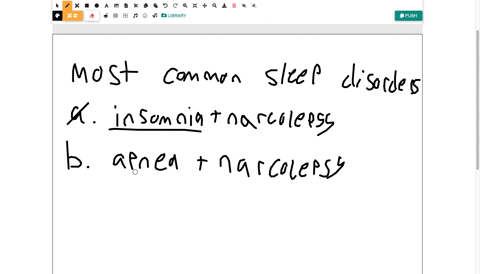 LIBRARY
PUSH
most common sleep disorders
a. insomnia + narcolepsy
b. apnea + narcolepsy